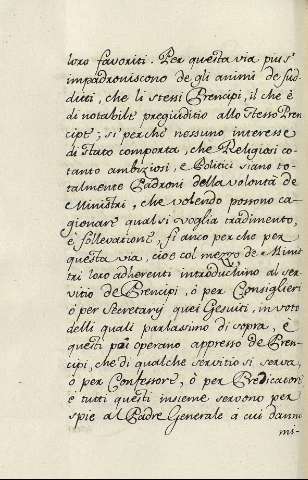 loro favoriti. Per questa via più s'
impadroniscono de gli animi de sud-
diti, che li stessi Prencipi, il che è
di notabile pregiuditio allo stesso Pren
cipe; si perche nessuno interesse
di stato comporta, che Religiosi co-
tanto ambiziosi, e Politici siano to-
talmente Padroni della volontà de
Ministri, che volendo possono ca-
gionare qual si voglia tradimento,
è sollevatione, si anco per che per
questa via, cioè col mezzo de Mini
stri loro adherenti introduchino al ser
vitio de Prencipi, ò per Consiglieri
ò per Secretarÿ quei Gesuiti, in voto
delli quali parlassimo di sopra, e
questi poi operano appresso de Pren
cipi, che di qualche servitio si serva,
ò per Confessore, ò per Predicatore
e tutti questi insieme servono per
spie al Padre Generale à cui danno
mi-